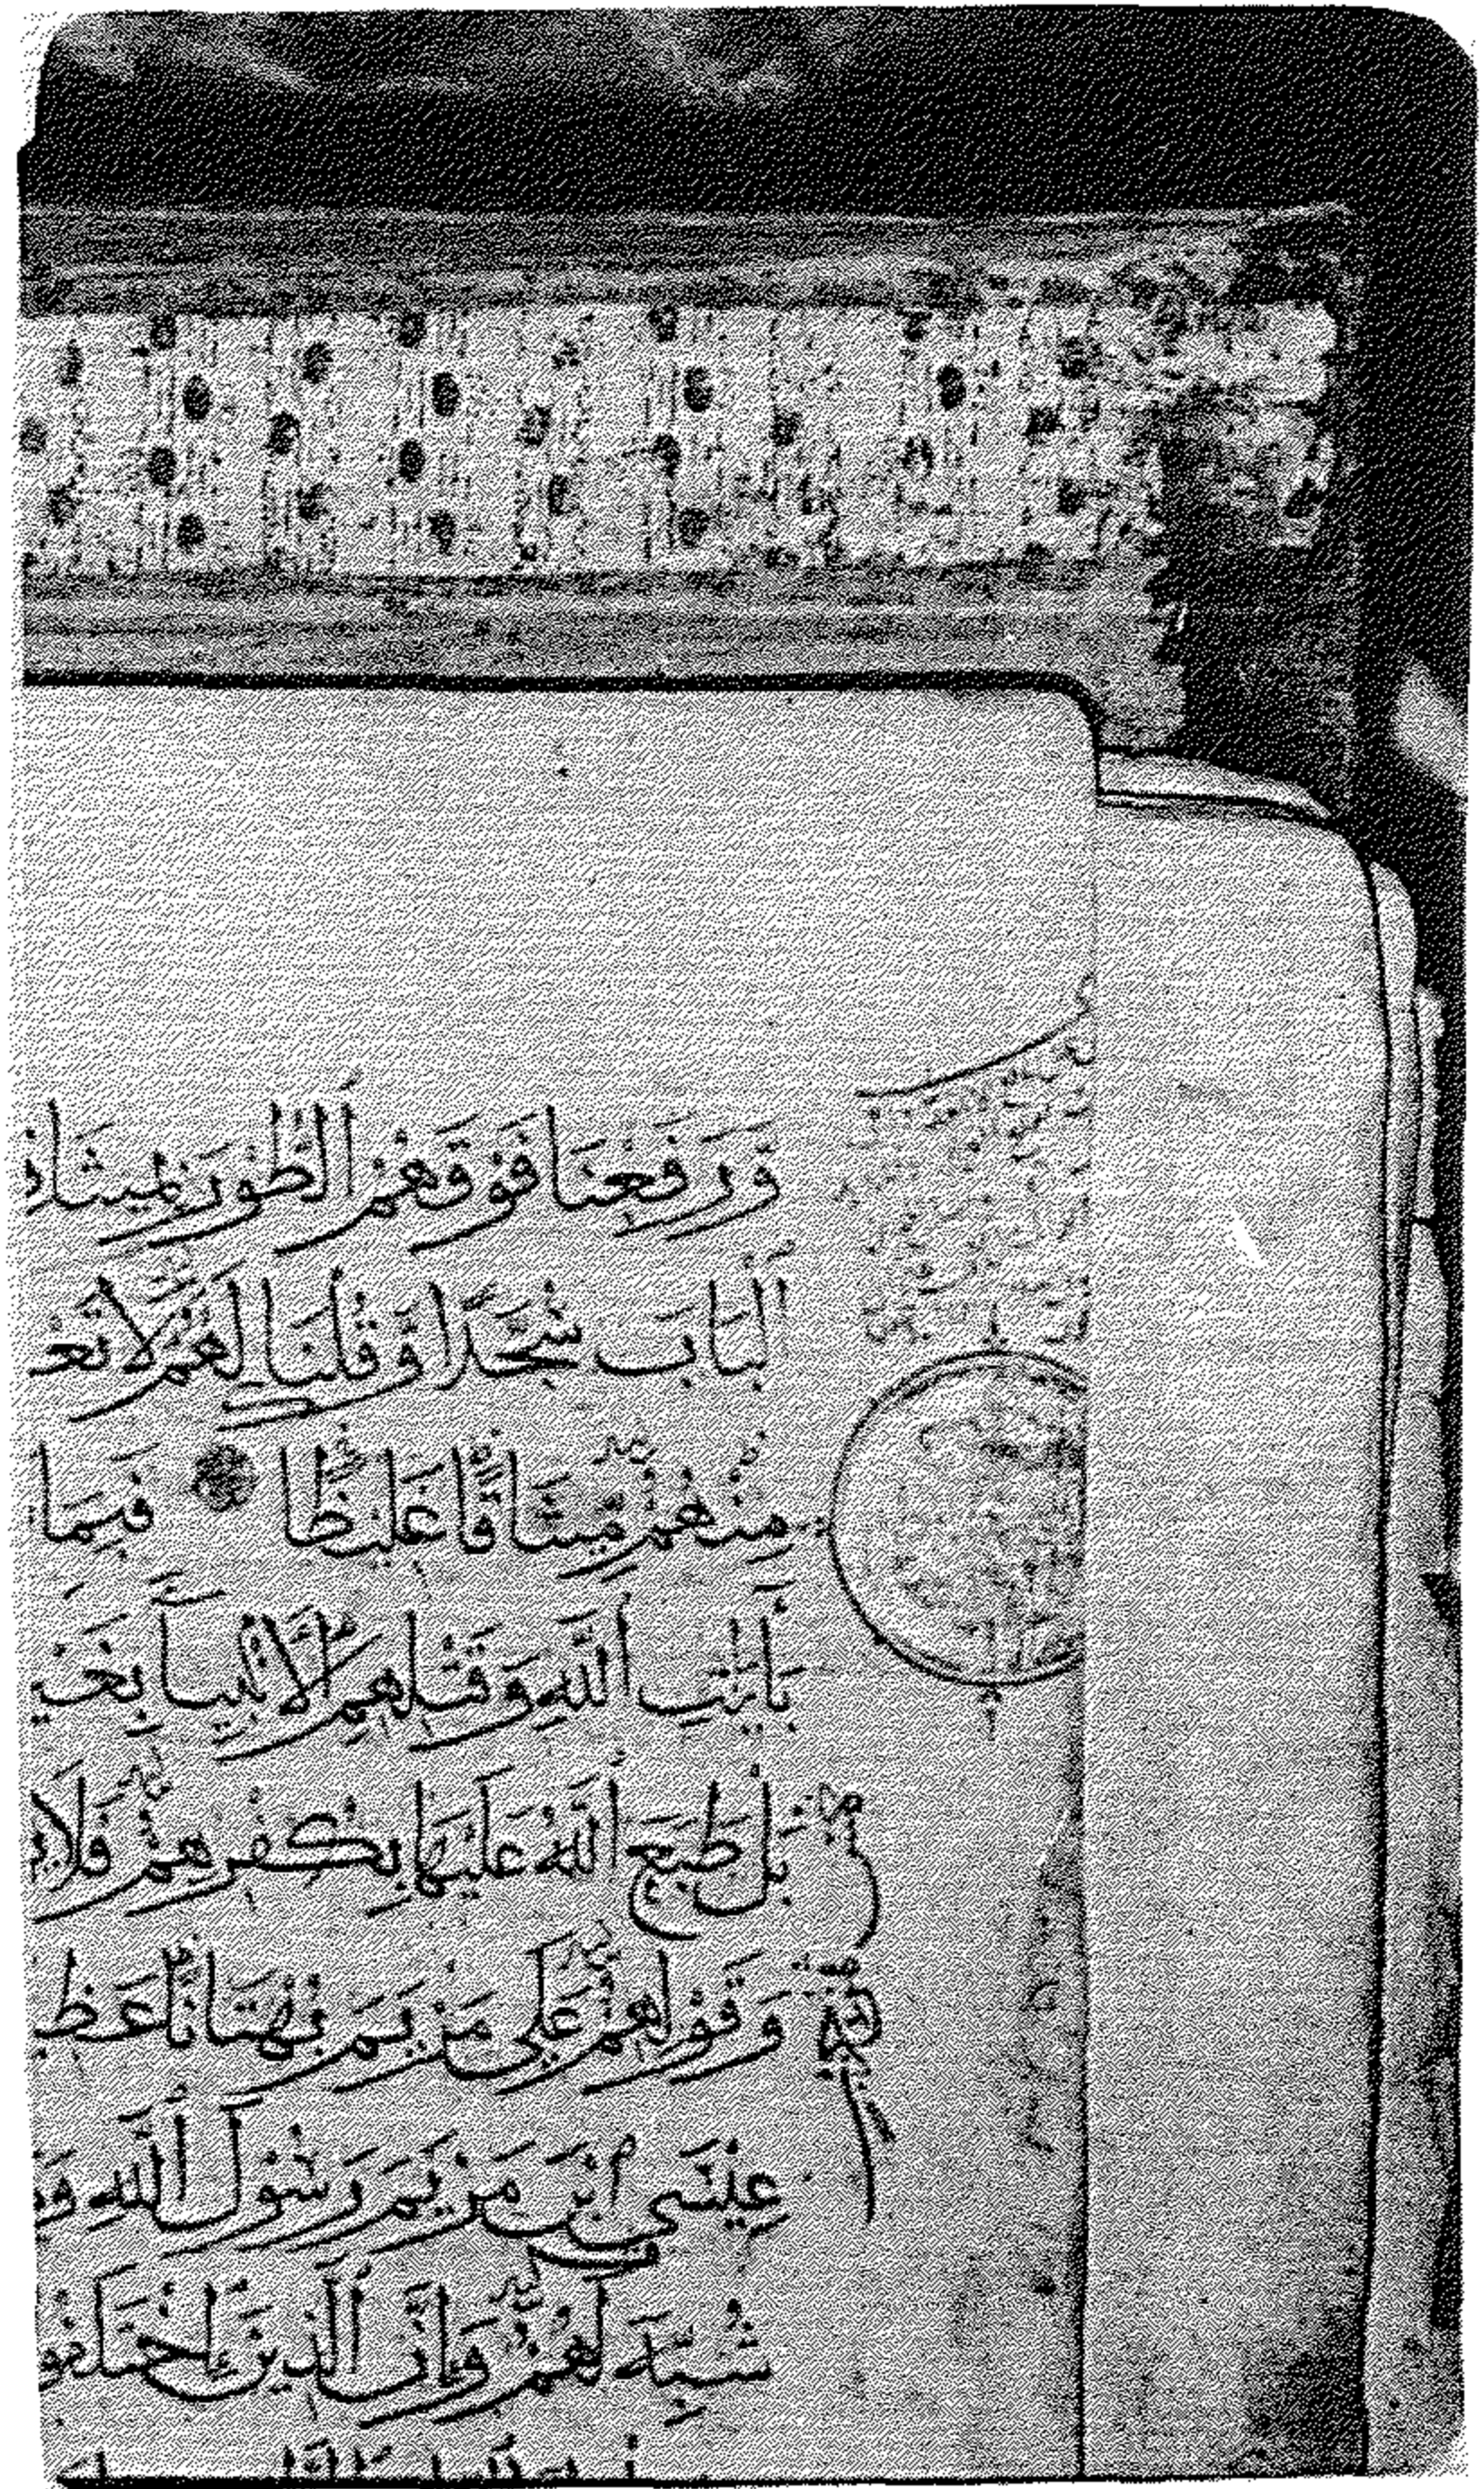 وَرَفَعْنَا فَوْقَهُمُ ٱلطُّورَ بِمِيثَاقِ
ٱلْبَابَ سُجَّدًا وَقُلْنَا لَهُمْ لَا تَعْ
مِنْهُم مِّيثَاقًا غَلِيظًا فَبِمَا
بِـَٔايَٰتِ ٱللَّهِ وَقَتْلِهِمُ ٱلْأَنۢبِيَآءَ بِغَيْ
بَلْ طَبَعَ ٱللَّهُ عَلَيْهَا بِكُفْرِهِمْ فَلَا يُ
وَقَوْلِهِمْ عَلَىٰ مَرْيَمَ بُهْتَٰنًا عَظِ
عِيسَى ٱبْنَ مَرْيَمَ رَسُولَ ٱللَّهِ وَمَ
شُبِّهَ لَهُمْ وَإِنَّ ٱلَّذِينَ ٱخْتَلَفُو